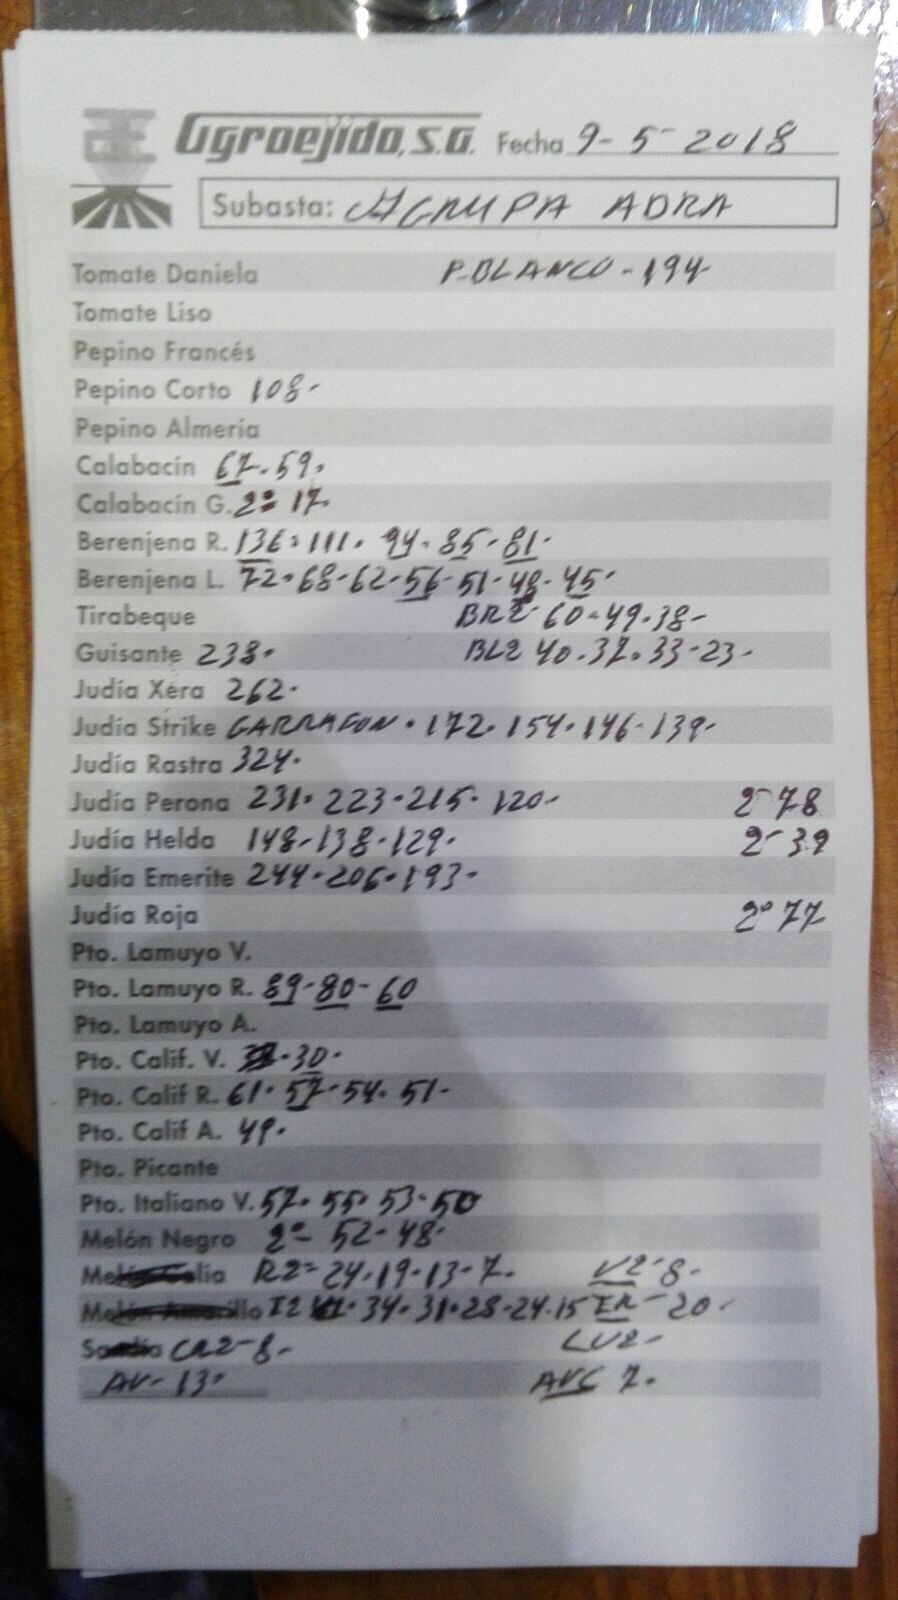 Agroejido, S.A. Fecha 9-5-2018
Subasta: AGRUPA ADRA
Tomate Daniela P.BLANCO-194-
Tomate Liso
Pepino Francés
Pepino Corto 108-
Pepino Almería
Calabacín 67.59.
Calabacín G. 2ª 17.
Berenjena R. 136.111.94.85-81-
Berenjena L. 72.68-62-56-51-48-45-
Tirabeque BR2 60-49.38-
Guisante 238. BL2 40.37.33-23-
Judía Xera 262.
Judía Strike GARRAFON.172.154.146-139-
Judía Rastra 324.
Judía Perona 231.223.215.120- 2-78
Judía Helda 148-138-129. 2-39
Judía Emerite 244.206.193-
Judía Roja 2º77
Pto. Lamuyo V.
Pto. Lamuyo R. 89-80-60
Pto. Lamuyo A.
Pto. Calif. V. 30-
Pto. Calif R. 61-57-54.51-
Pto. Calif A. 49.
Pto. Picante
Pto. Italiano V. 57.55.53-50
Melón Negro 2º-52-48-
Melón Galia R2-24.19-13-7. V2-8-
Melón Amarillo I2 34.31.28-24.15 IR-20-
Sandía CR2-8- LV2-
AV-13- AVC 7.